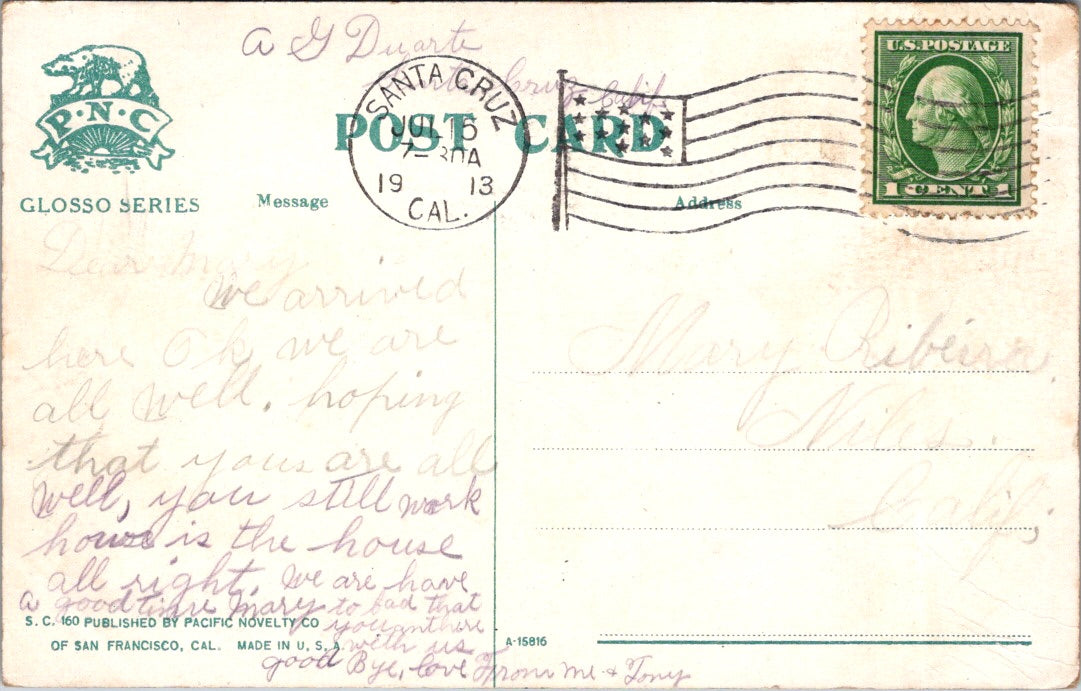 A G Duarte
Cruz Calif.
U.S. POSTAGE
1 CENT 1
P·N·C
GLOSSO SERIES
POST CARD
SANTA CRUZ
JUL 16
7-30A
19 13
CAL.
Message
Address
Dear Mary
We arrived
here Ok we are
all well. hoping
that yous are all
well, you still work
house is the house
all right. We are have
a good time Mary to bad that
you
with us
good Bye, love From me + Tony
Mary Ribeiro
Niles.
Calif,
S. C. 160 PUBLISHED BY PACIFIC NOVELTY CO
OF SAN FRANCISCO, CAL. MADE IN U. S. A.
A-15816